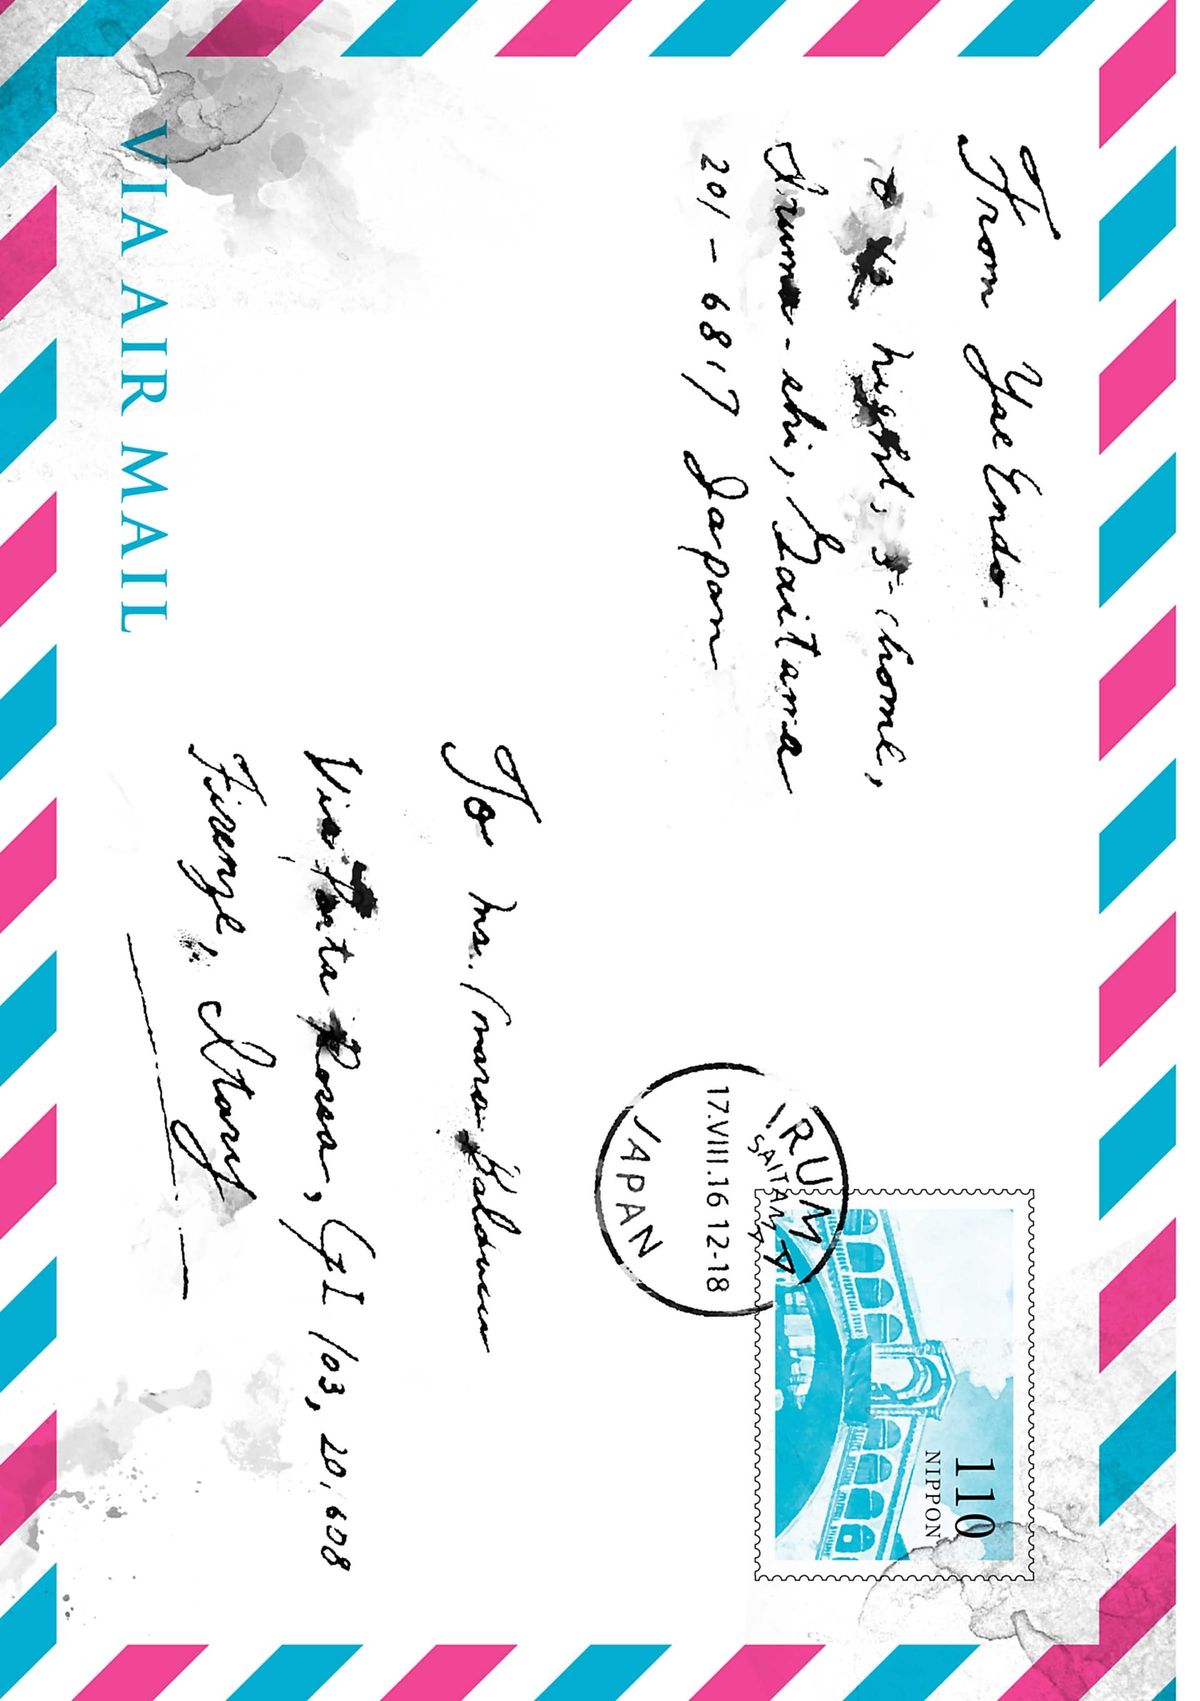 From Yae Endo
heights, 5-chome,
Iruma-shi, Saitama
201-6817 Japan
110
NIPPON
IRUMA
SAITAMA
17.VIII.16 12-18
JAPAN
To Ms.
Via Porta Rossa, 103, 20,608
Firenze, Itary
VIA AIR MAIL